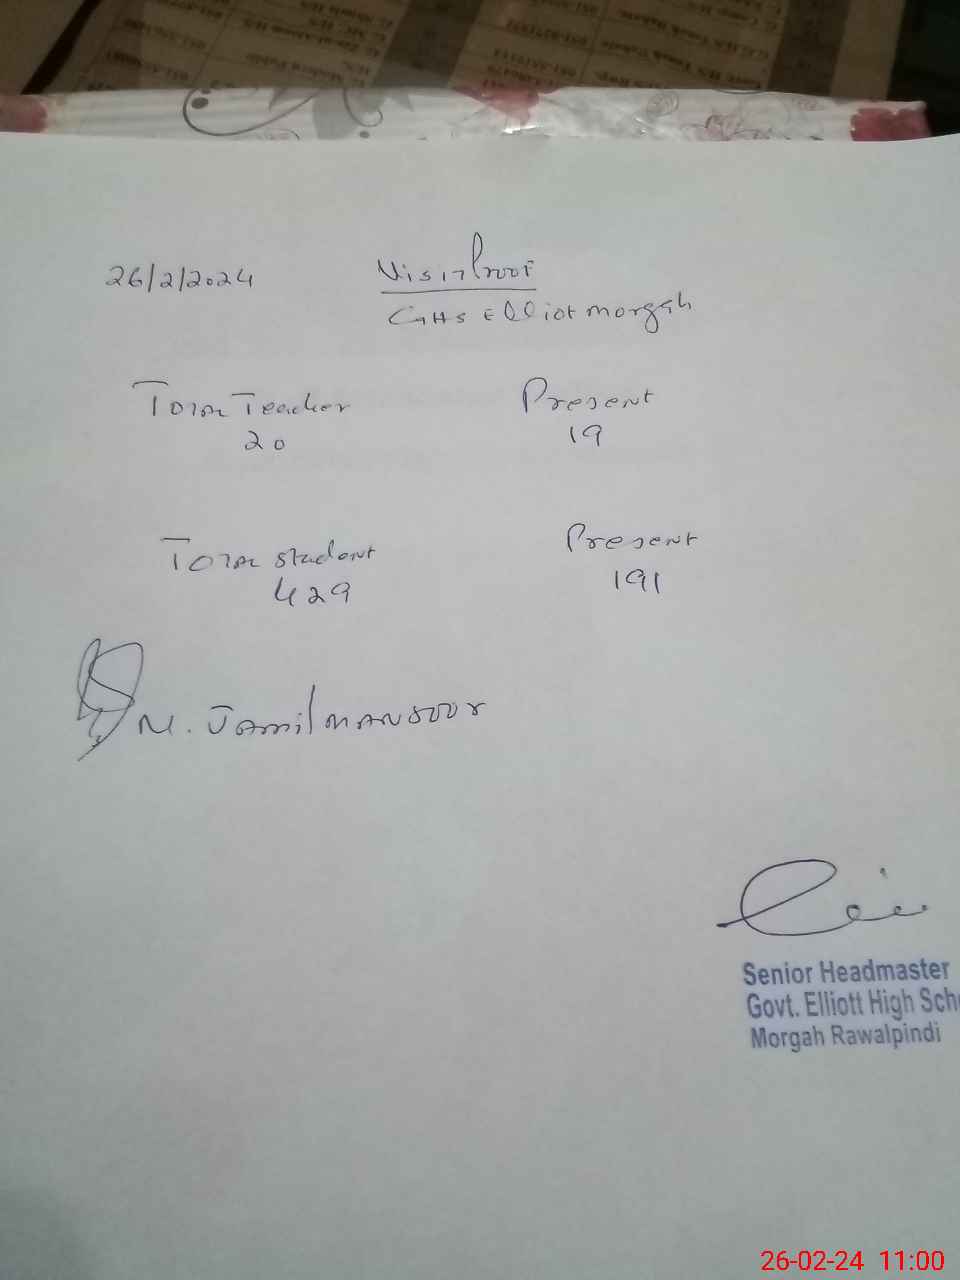 26/2/2024 Visit Proof
GHS Elliot morgah
Total Teacher Present
20 19
Total student Present
429 191
M. Jamil Mansoor
Senior Headmaster
Govt. Elliott High Sch
Morgah Rawalpindi
26-02-24 11:00